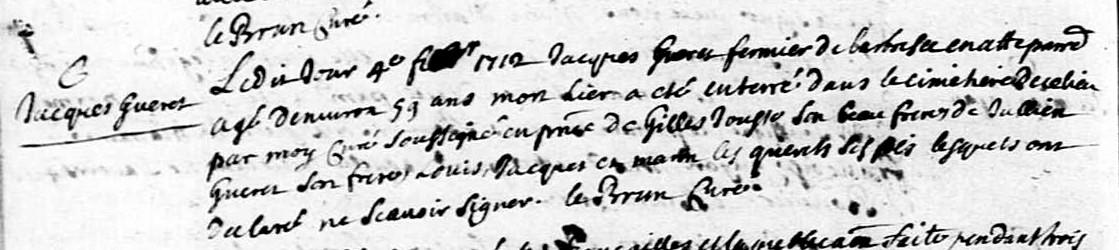 le Brun Curé.
G
Jacques Gueret
Ledit Jour 4e 1712 Jacques Gueret fermier de en cette paroisse
agé denviron 59 ans mort hier a eté enterré dans le cimetiere de ce lieu
par moy Curé soussigné en pnce de Gilles Jousse son beau frere de Jullien
Gueret son frere, Louis, Jacques et les Guerets ses fils lesquels ont
declaré ne scavoir signer. le Brun Curé.
faite pendant trois